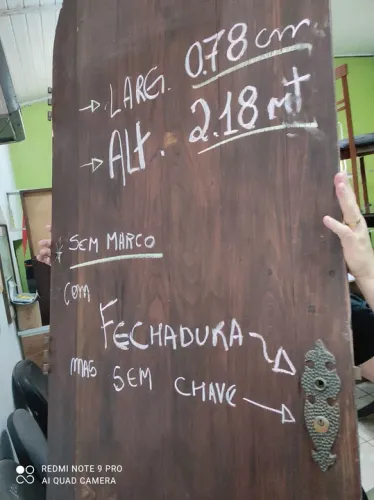 → LARG. 0.78 cm
→ ALT. 2.18 mt
* SEM MARCO
COM
FECHADURA
MAS SEM CHAVE
REDMI NOTE 9 PRO
AI QUAD CAMERA